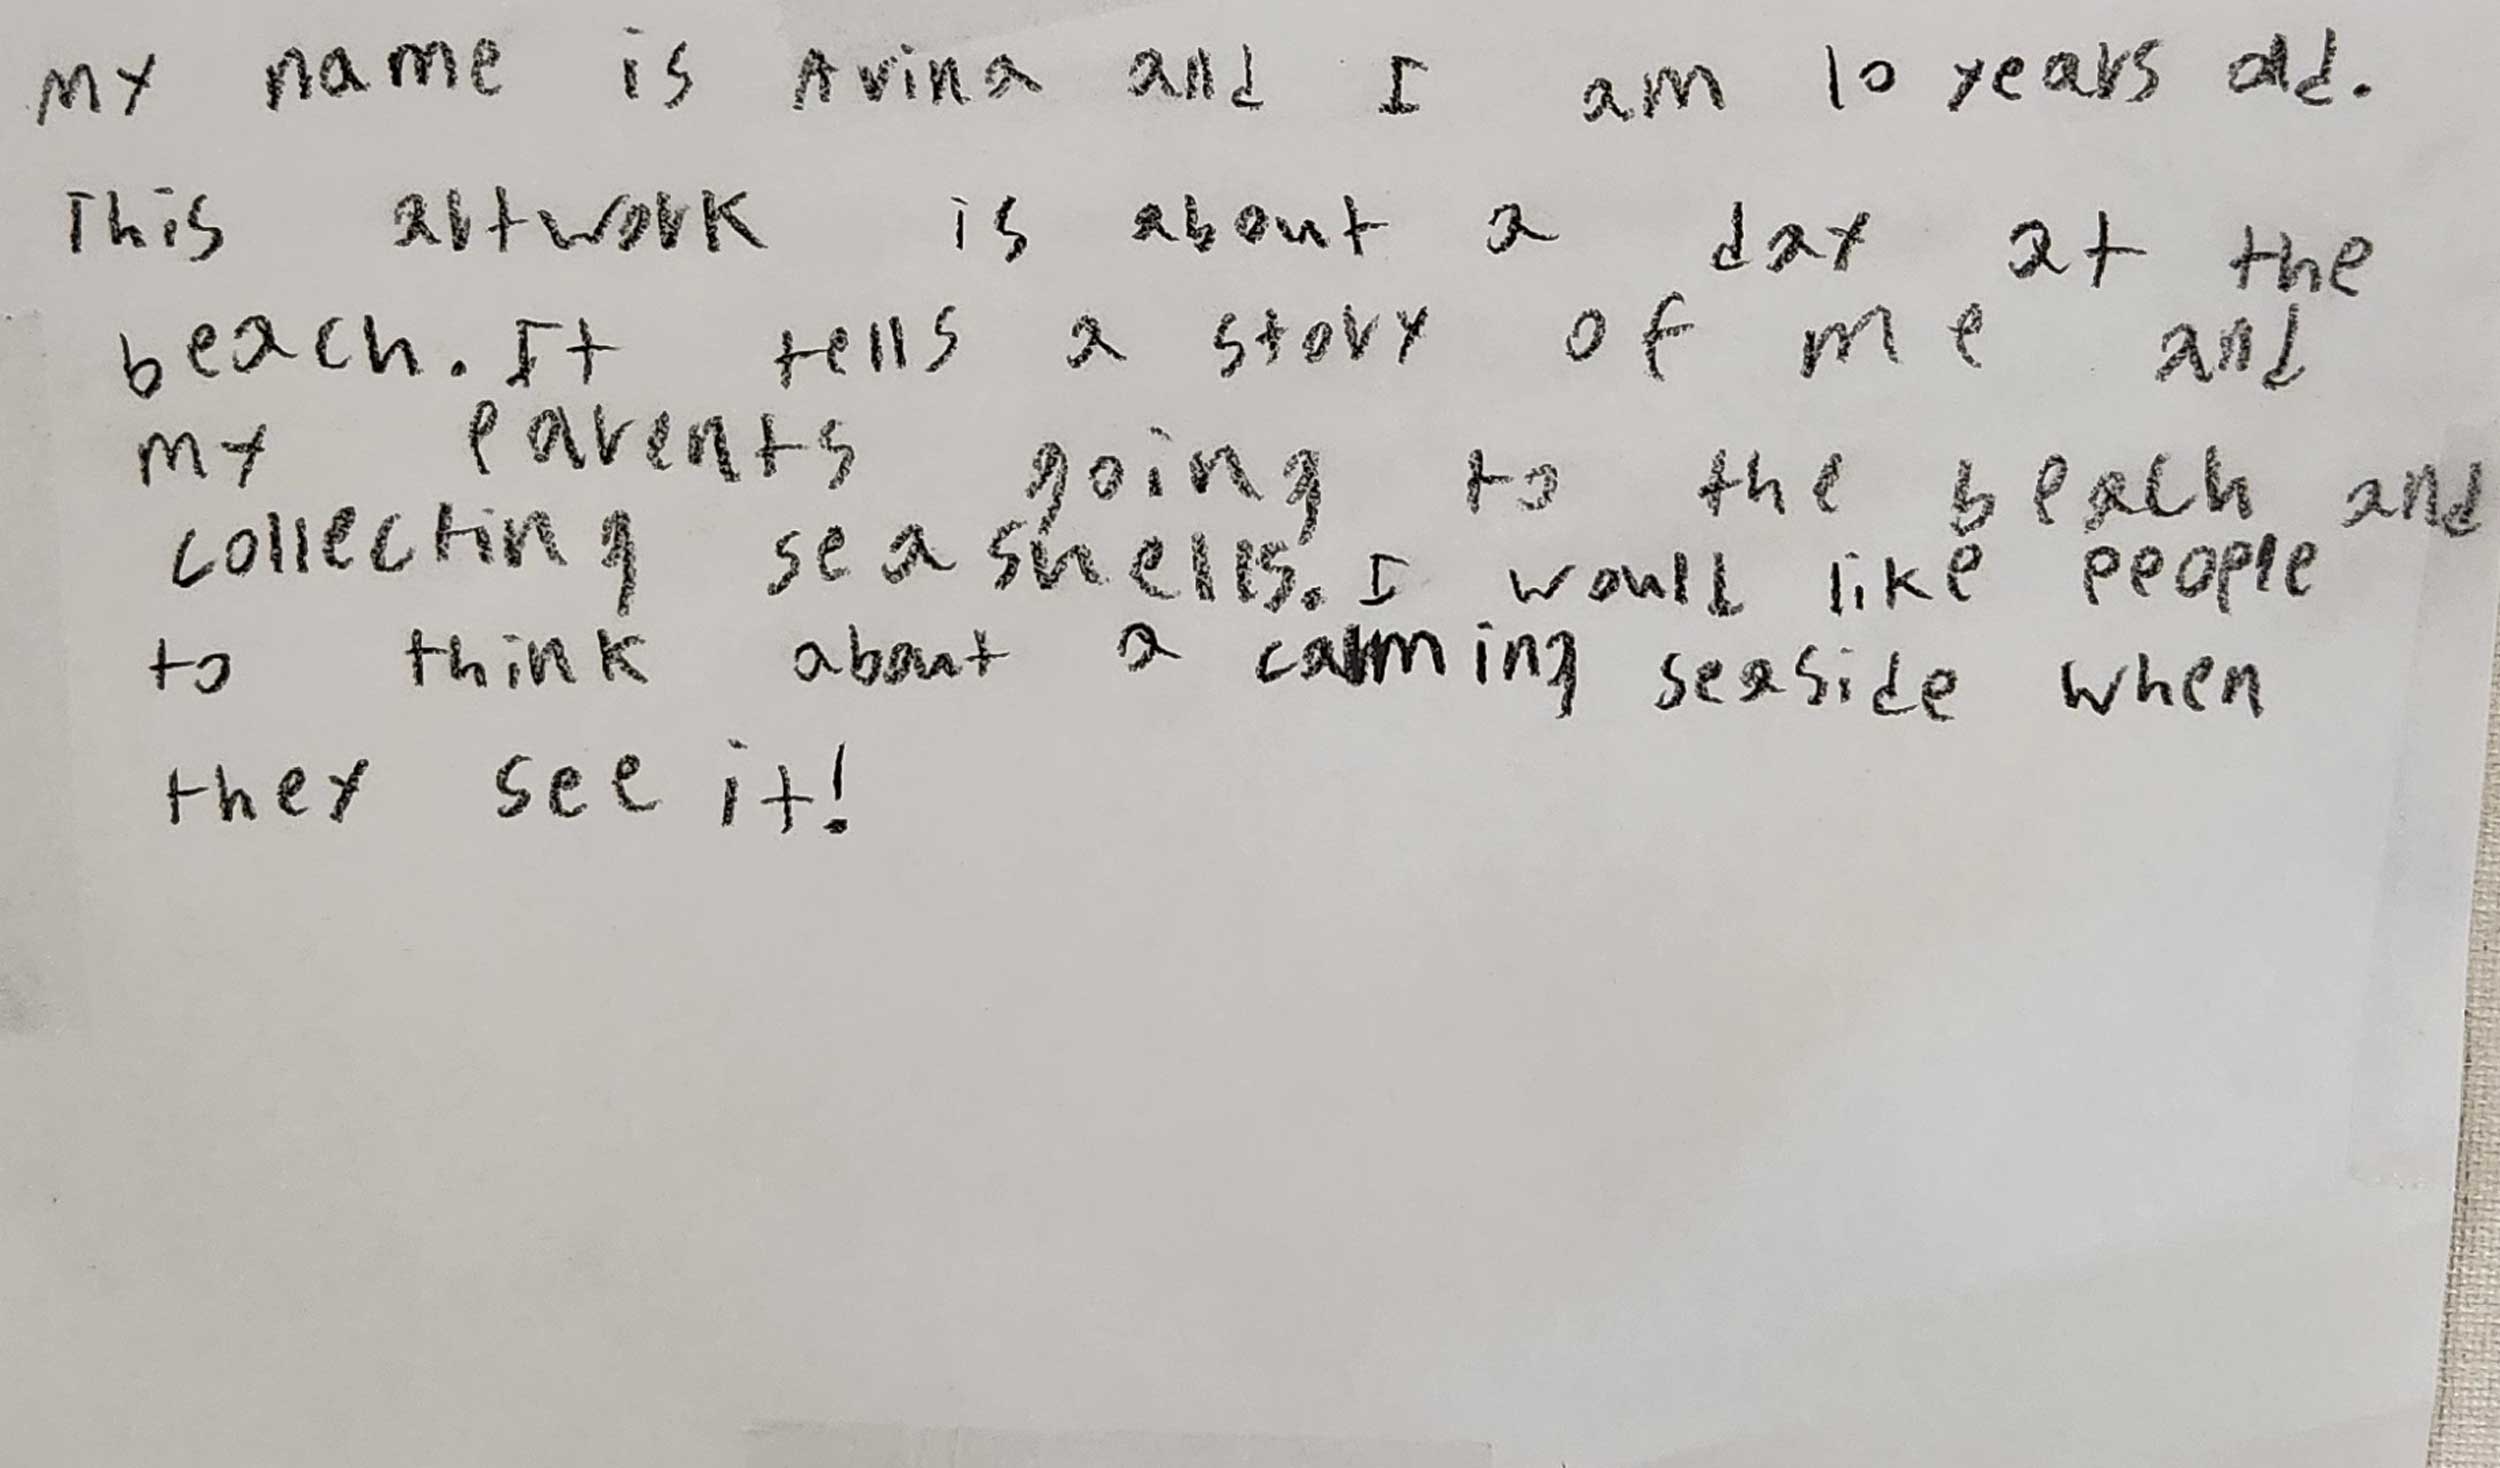 My name is Arina and I am 10 years old.
This artwork is about a day at the
beach. It tells a story of me and
my parents going to the beach and
collecting seashells. I would like people
to think about a calming seaside when
they see it!